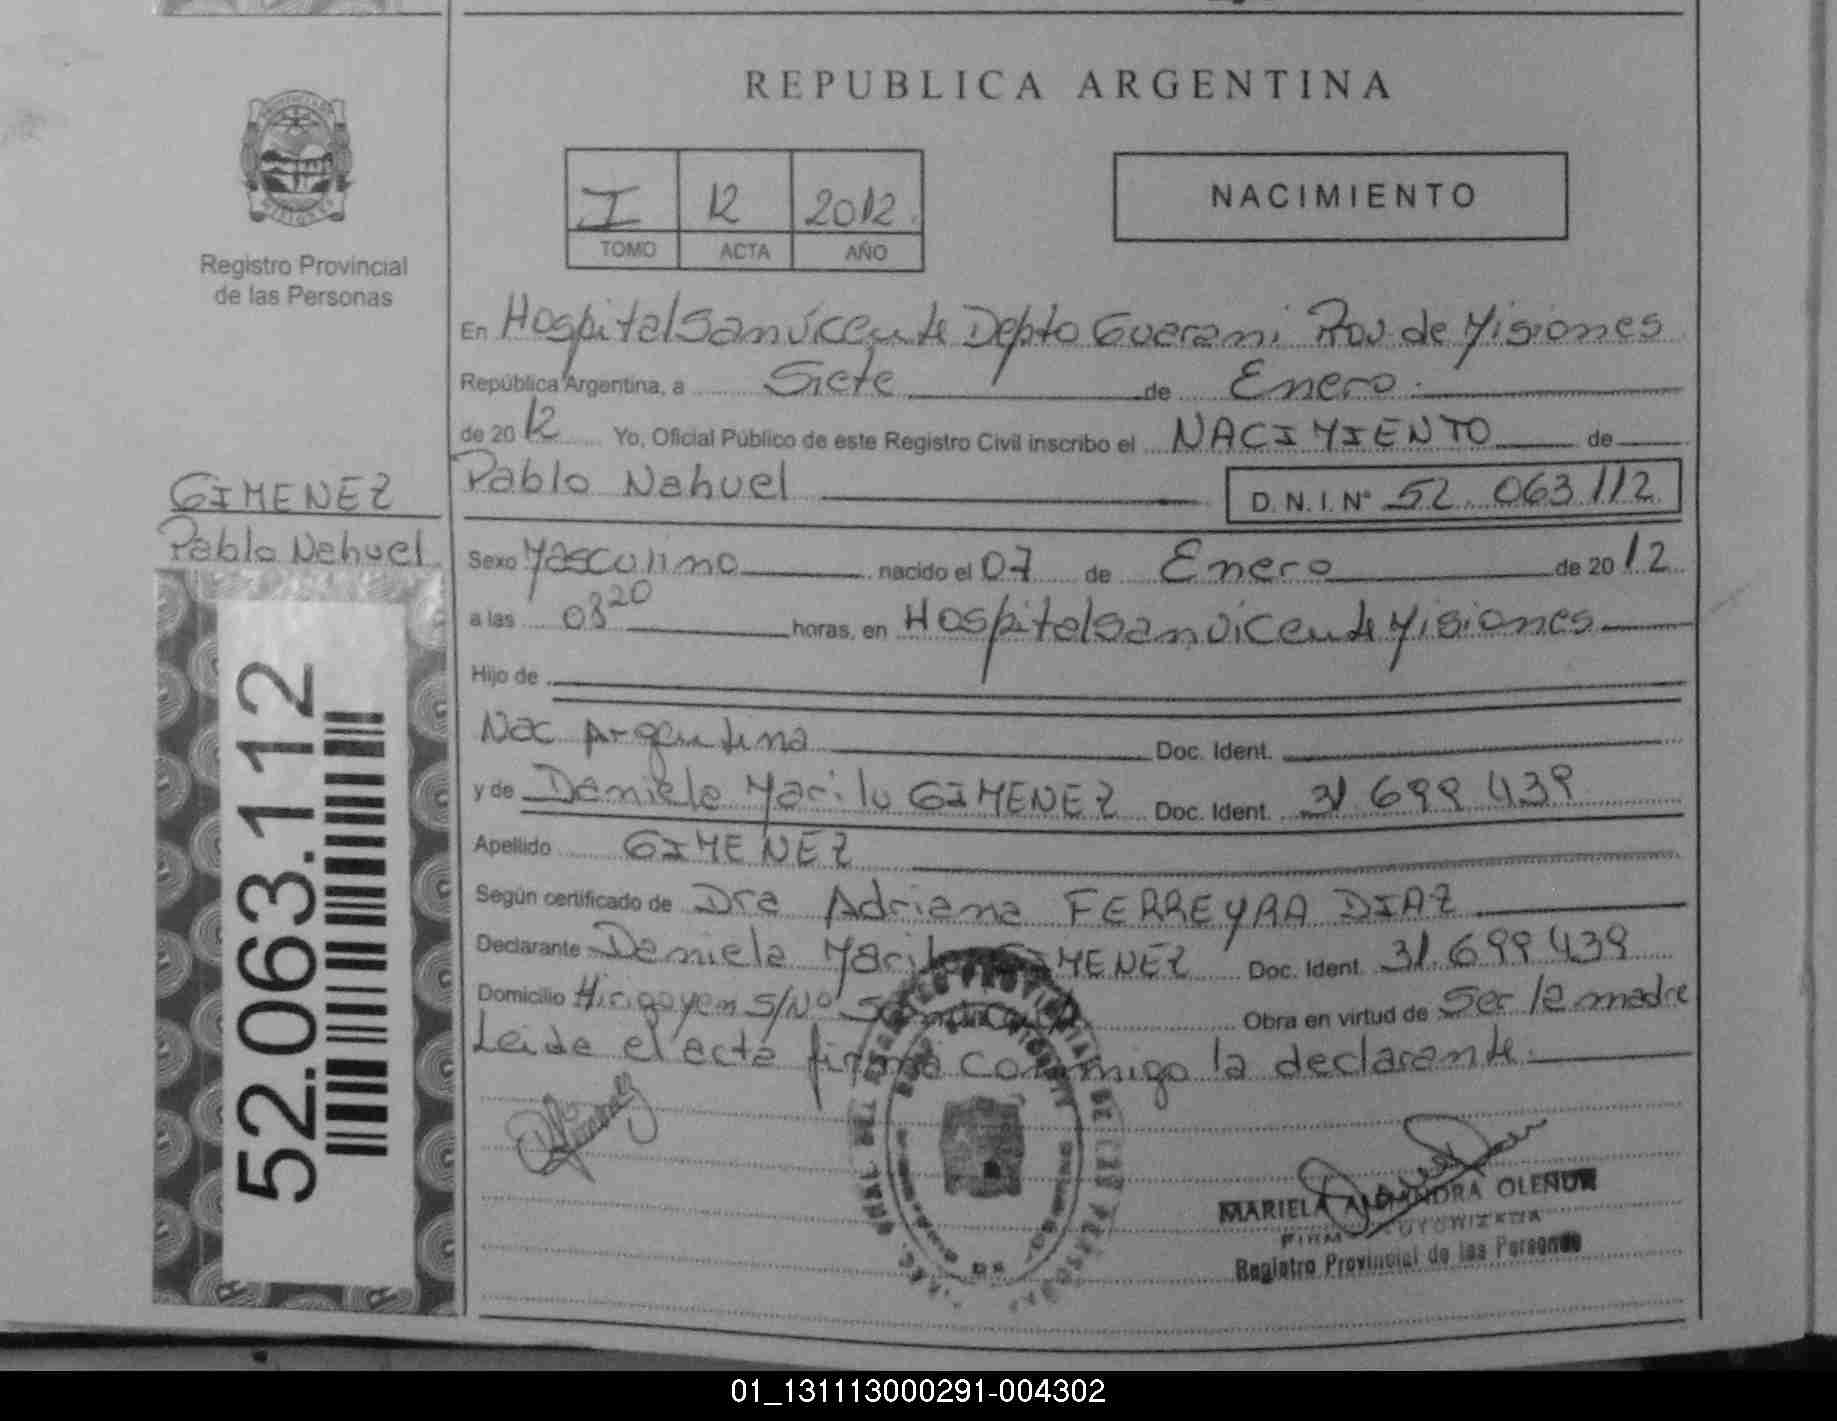 REPUBLICA ARGENTINA
I 12 2012
TOMO ACTA AÑO
NACIMIENTO
Registro Provincial
de las Personas
En Hospital San Vicente Depto Guarani Prov de Misiones
República Argentina, a Siete de Enero
de 2012 Yo, Oficial Público de este Registro Civil inscribo el NACIMIENTO de
Pablo Nahuel D.N.I.N° 52.063.112
GIMENEZ
Pablo Nahuel
52.063.112
Sexo Masculino nacido el 07 de Enero de 2012
a las 03 20 horas, en Hospital San Vicente Misiones
Hijo de
Nac Argentina Doc. Ident.
y de Daniela Marilu GIMENEZ Doc. Ident. 31 699 439
Apellido GIMENEZ
Según certificado de Dra Adriana FERREYRA DIAZ
Declarante Daniela Marilu GIMENEZ Doc. Ident. 31.699.439
Domicilio Hirigoyen S/N° San Vicente Obra en virtud de Ser la madre
Leida el acta firma conmigo la declarante.
MARIELA ALEJANDRA OLENUR
FIRMA AUTORIZADA
Registro Provincial de las Personas
01_131113000291-004302